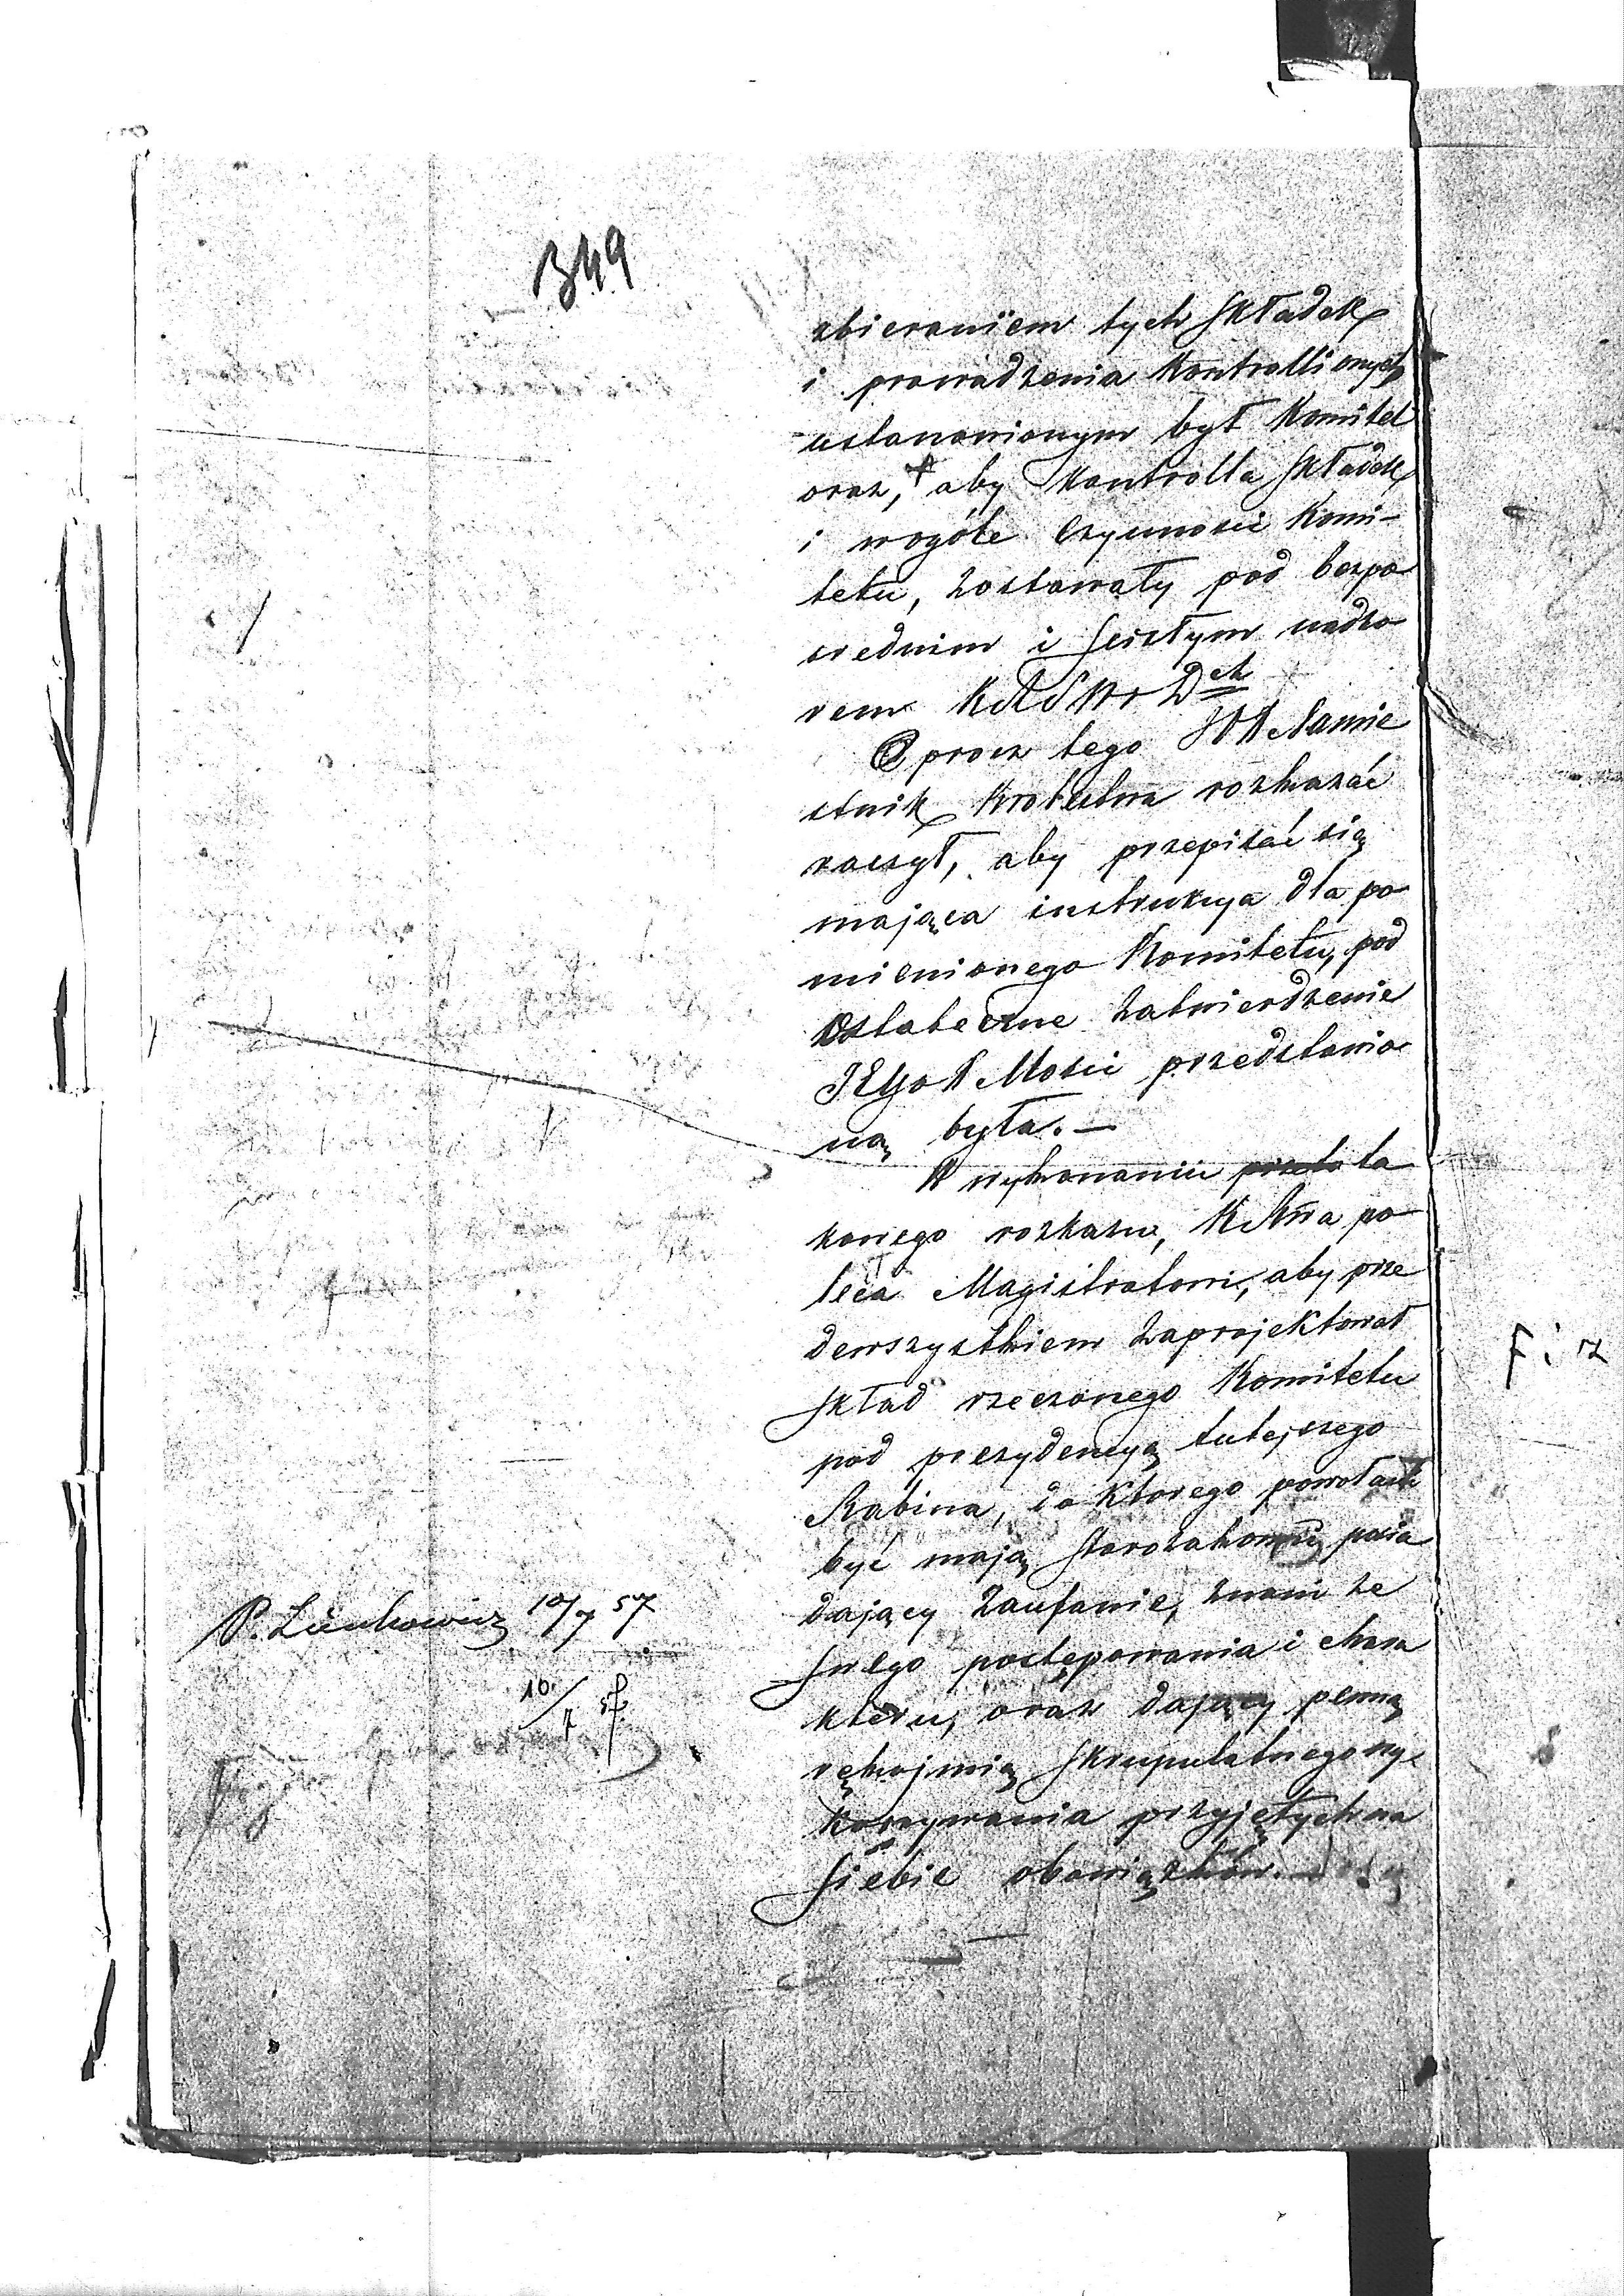 349
zbieraniem tych składek
i prowadzenia Kontrolli onych
ustanowionym był Komitet
oraz, aby Kontrolla składek
i wogóle czynności Komi-
tetu, zostawały pod bezpo
srednim i scisłym nadzo
rem KRSW i Dch
Oprocz tego JO Namie
stnik Królestwa rozkazać
raczył, aby przepisać się
mająca instrukcya dla po
mienionego Komitetu, pod
ostateczne zatwierdzenie
JEgo Mości przedstawio
ną była.—
W wykonaniu przeto ta
kowego rozkazu, po
leca Magistratowi, aby prze
dewszystkiem zaprojektował
skład rzeczonego Komitetu
pod prezydencyą tutejszego
Rabina, do ktorego powołani
być mają starozakonni posia
dający zaufanie, znani ze
swego postępowania i chara
kteru, oraz dający pewną
rękojmią skrupulatnego wy
konywania przyjętych na
siebie obowiązków.—
P. 10/7 57
10/7 57